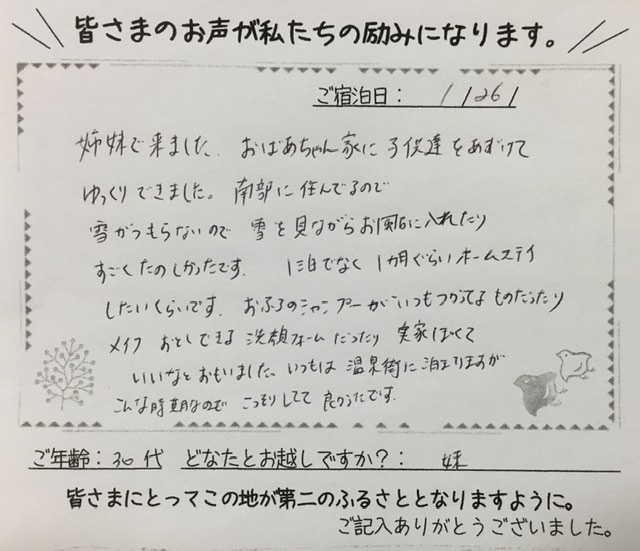 皆さまのお声が私たちの励みになります。
ご宿泊日： 1/26/
姉妹で来ました。おばあちゃん家に子供達をあずけて
ゆっくりできました。南部に住んでるので
雪がつもらないので 雪を見ながらお風呂に入れたり
すごくたのしかったです。 1泊でなく 1カ月ぐらいホームステイ
したいくらいです。おふろのシャンプーがいつもつかってるものだったり
メイク おとしできる 洗顔フォームだったり 実家ぽくて
いいなとおもいました。いつもは 温泉街に泊まりますが
こんな時期なので こっそりしてて 良かったです。
ご年齢：30代 どなたとお越しですか？： 妹
皆さまにとってこの地が第二のふるさととなりますように。
ご記入ありがとうございました。